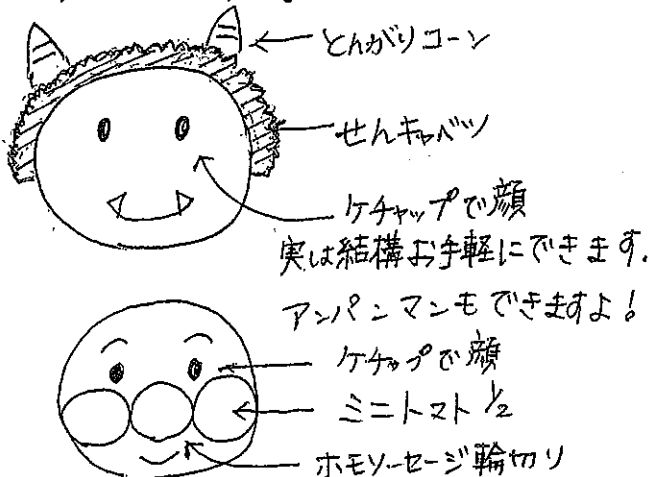 とんがりコーン
せんキャベツ
ケチャップで顔
実は結構お手軽にできます。
アンパンマンもできますよ！
ケチャップで顔
ミニトマト1/2
ホモソーセージ輪切り